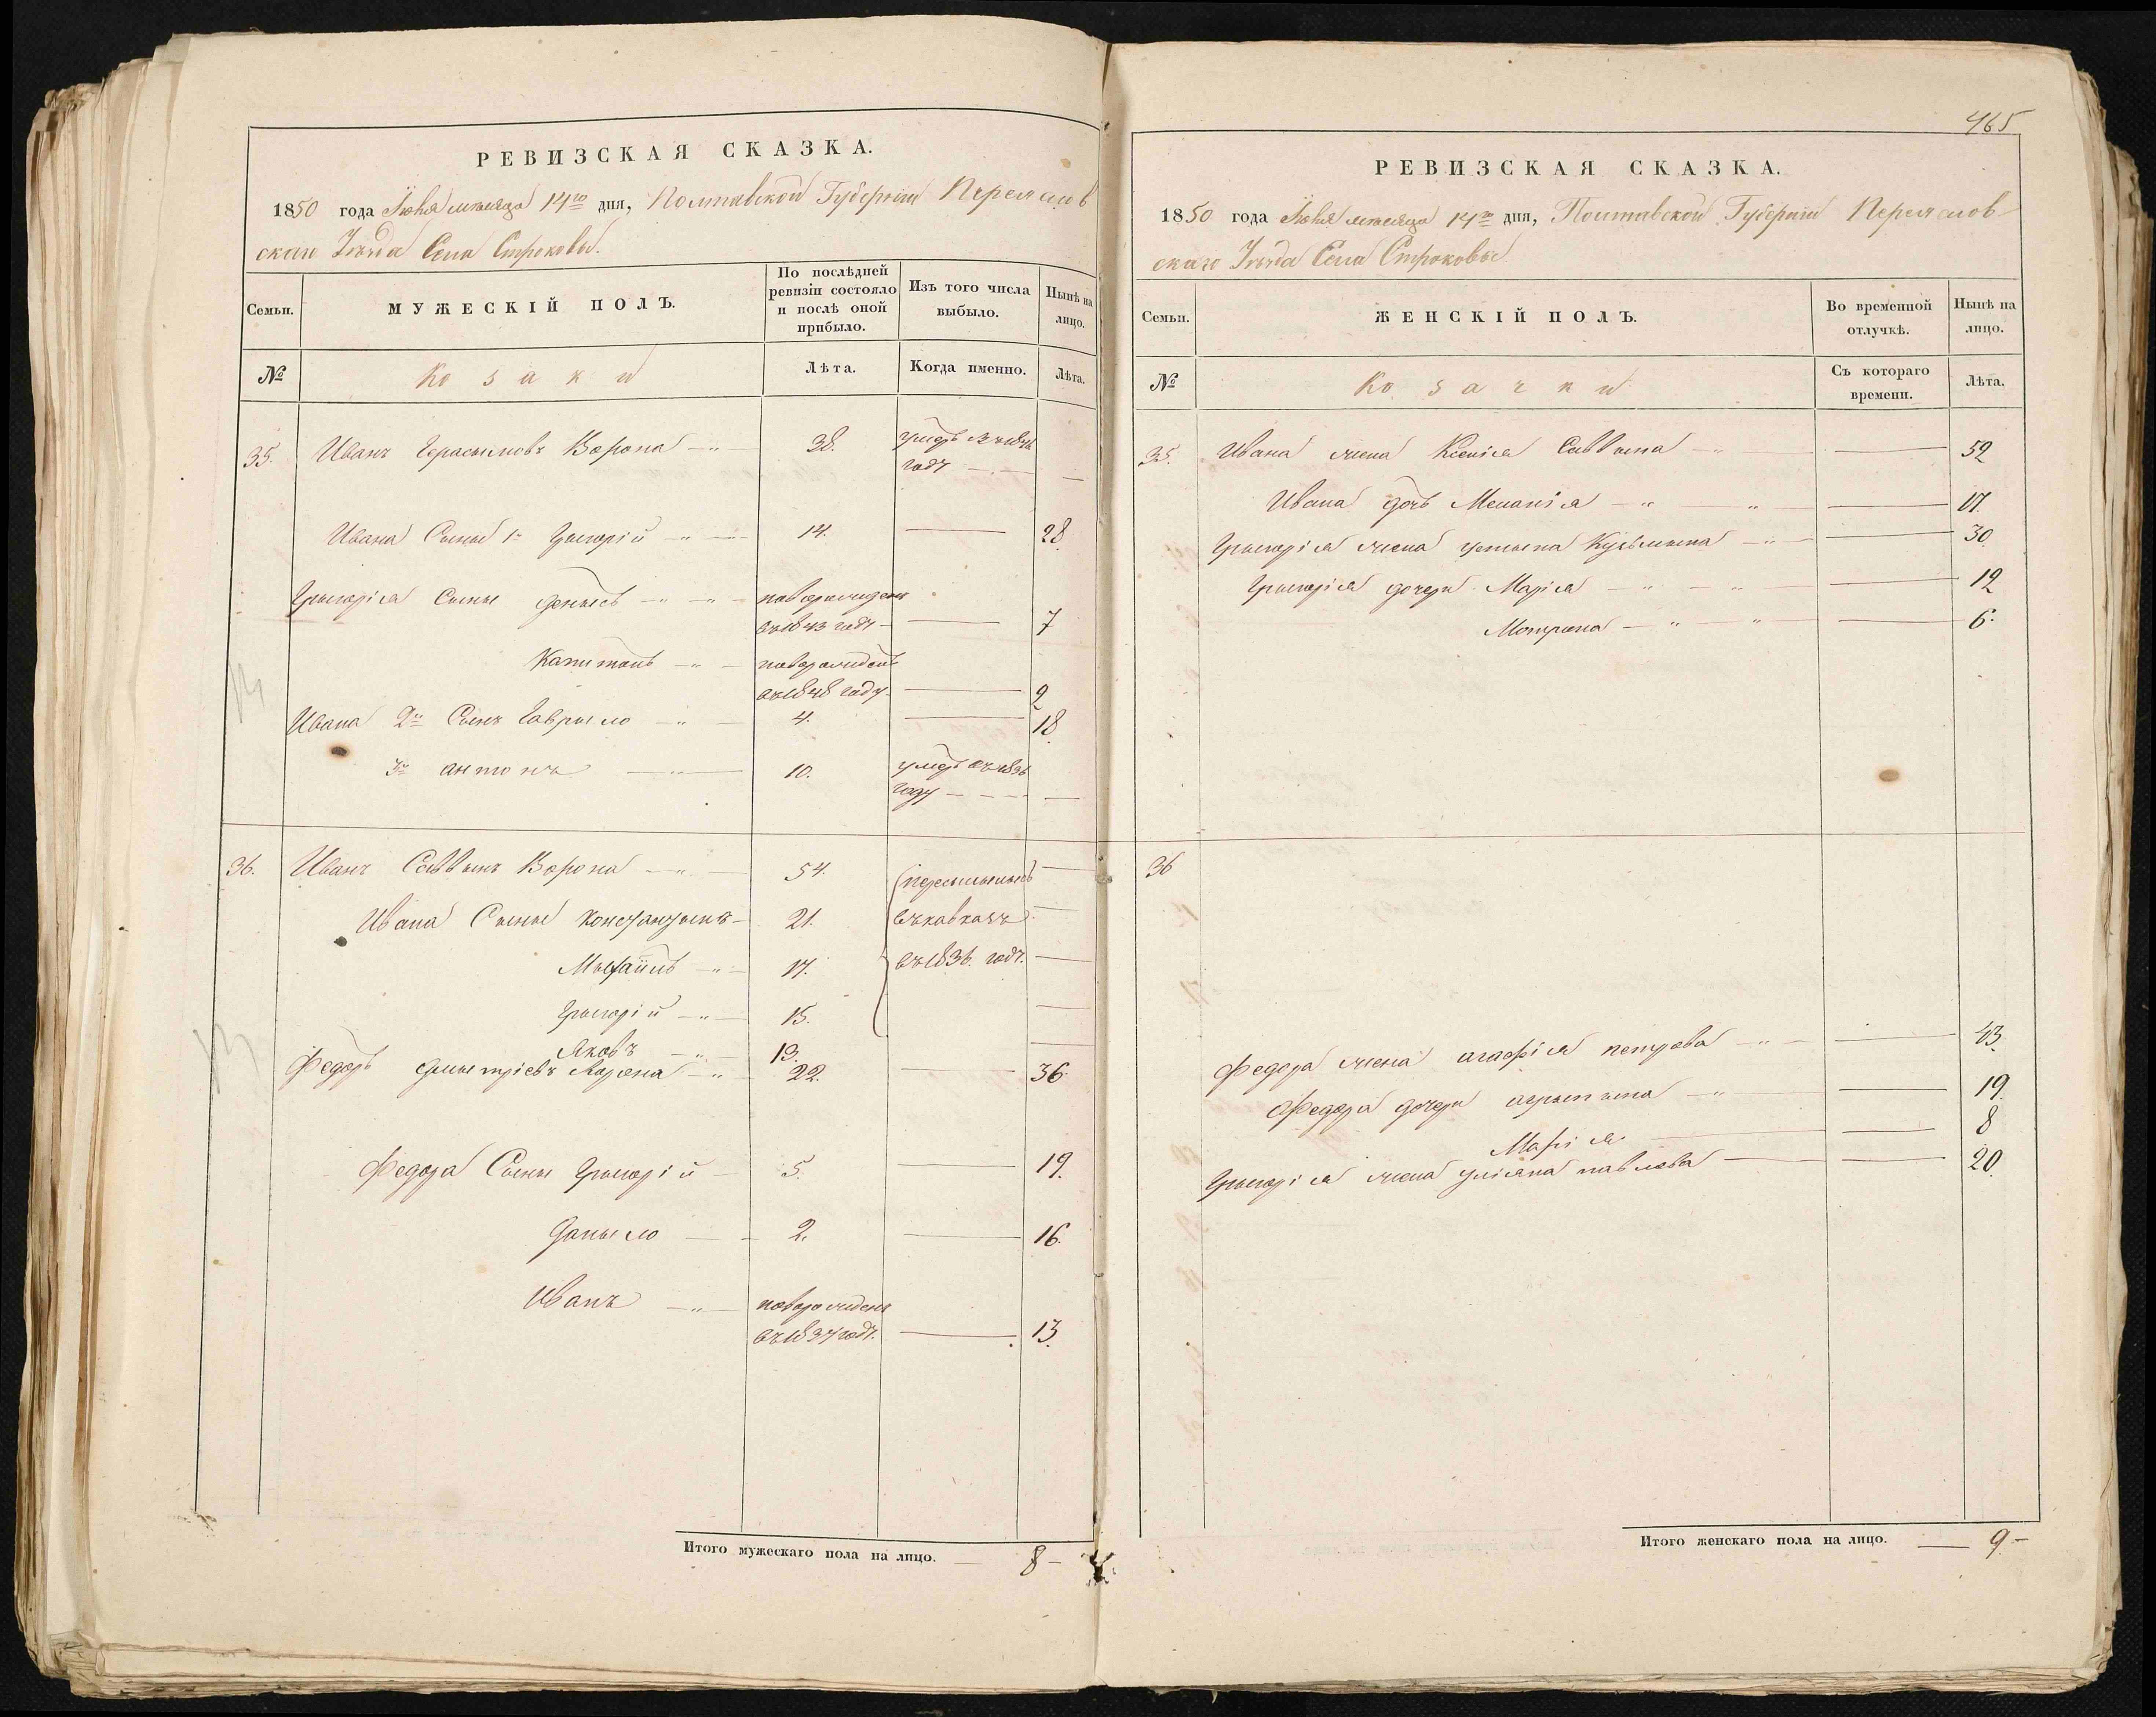 РЕВИЗСКАЯ СКАЗКА.
1850 года Июня месяца 14го дня, Полтавской Губернии Переяслов
скаго Уезда Села Строковы.
Семьи.
МУЖЕСКІЙ ПОЛЪ.
По послѣдней ревизіи состояло и послѣ оной прибыло.
Изъ того числа выбыло.
Нынѣ на лицо.
№
Козаки
Лѣта.
Когда именно.
Лѣта.
35. Иванъ Герасымовъ Ворона 38. умеръ
годѣ
Ивана Сыны 1й Грыгорій 14. 28.
Грыгорія Сыны Денысъ новорожденъ
въ 1843 годѣ 7
Капитонъ новорожденъ
въ 1848 году 2
Ивана 2й Сынъ Гаврыло 4. 18.
3й антонъ 10. умеръ въ 1836
году
36. Иванъ Саввынъ Ворона 54.
Ивана Сыны Константынъ 21. въ кавказъ
Мыхаилъ 17. въ 1836. годѣ.
Грыгорій 15.
Яковъ 13.
Федоръ Дмытріевъ Ворона 22. 36.
Федора Сыны Грыгорій 5. 19.
Даныло 2. 16.
Иванъ новорожденъ
въ 1837 годѣ. 13.
Итого мужескаго пола на лицо. 8
465
РЕВИЗСКАЯ СКАЗКА.
1850 года Июня месяца 14го дня, Полтавской Губерніи Переяслов
скаго Уезда Села Строковы
Семьи.
ЖЕНСКІЙ ПОЛЪ.
Во временной отлучкѣ.
Нынѣ на лицо.
№
Козачки
Съ котораго времени.
Лѣта.
35. Ивана жена Ксенія Саввына 52
Ивана дочь Меланія 17.
Грыгорія жена устына Кузьмына 30
Грыгорія дочери Марія 12
Мотрона 6.
36
Федора жена агафія петрова 43.
Федора дочери агрыпына 19.
Марія 8
Грыгорія жена уліяна павлова 20.
Итого женскаго пола на лицо. 9